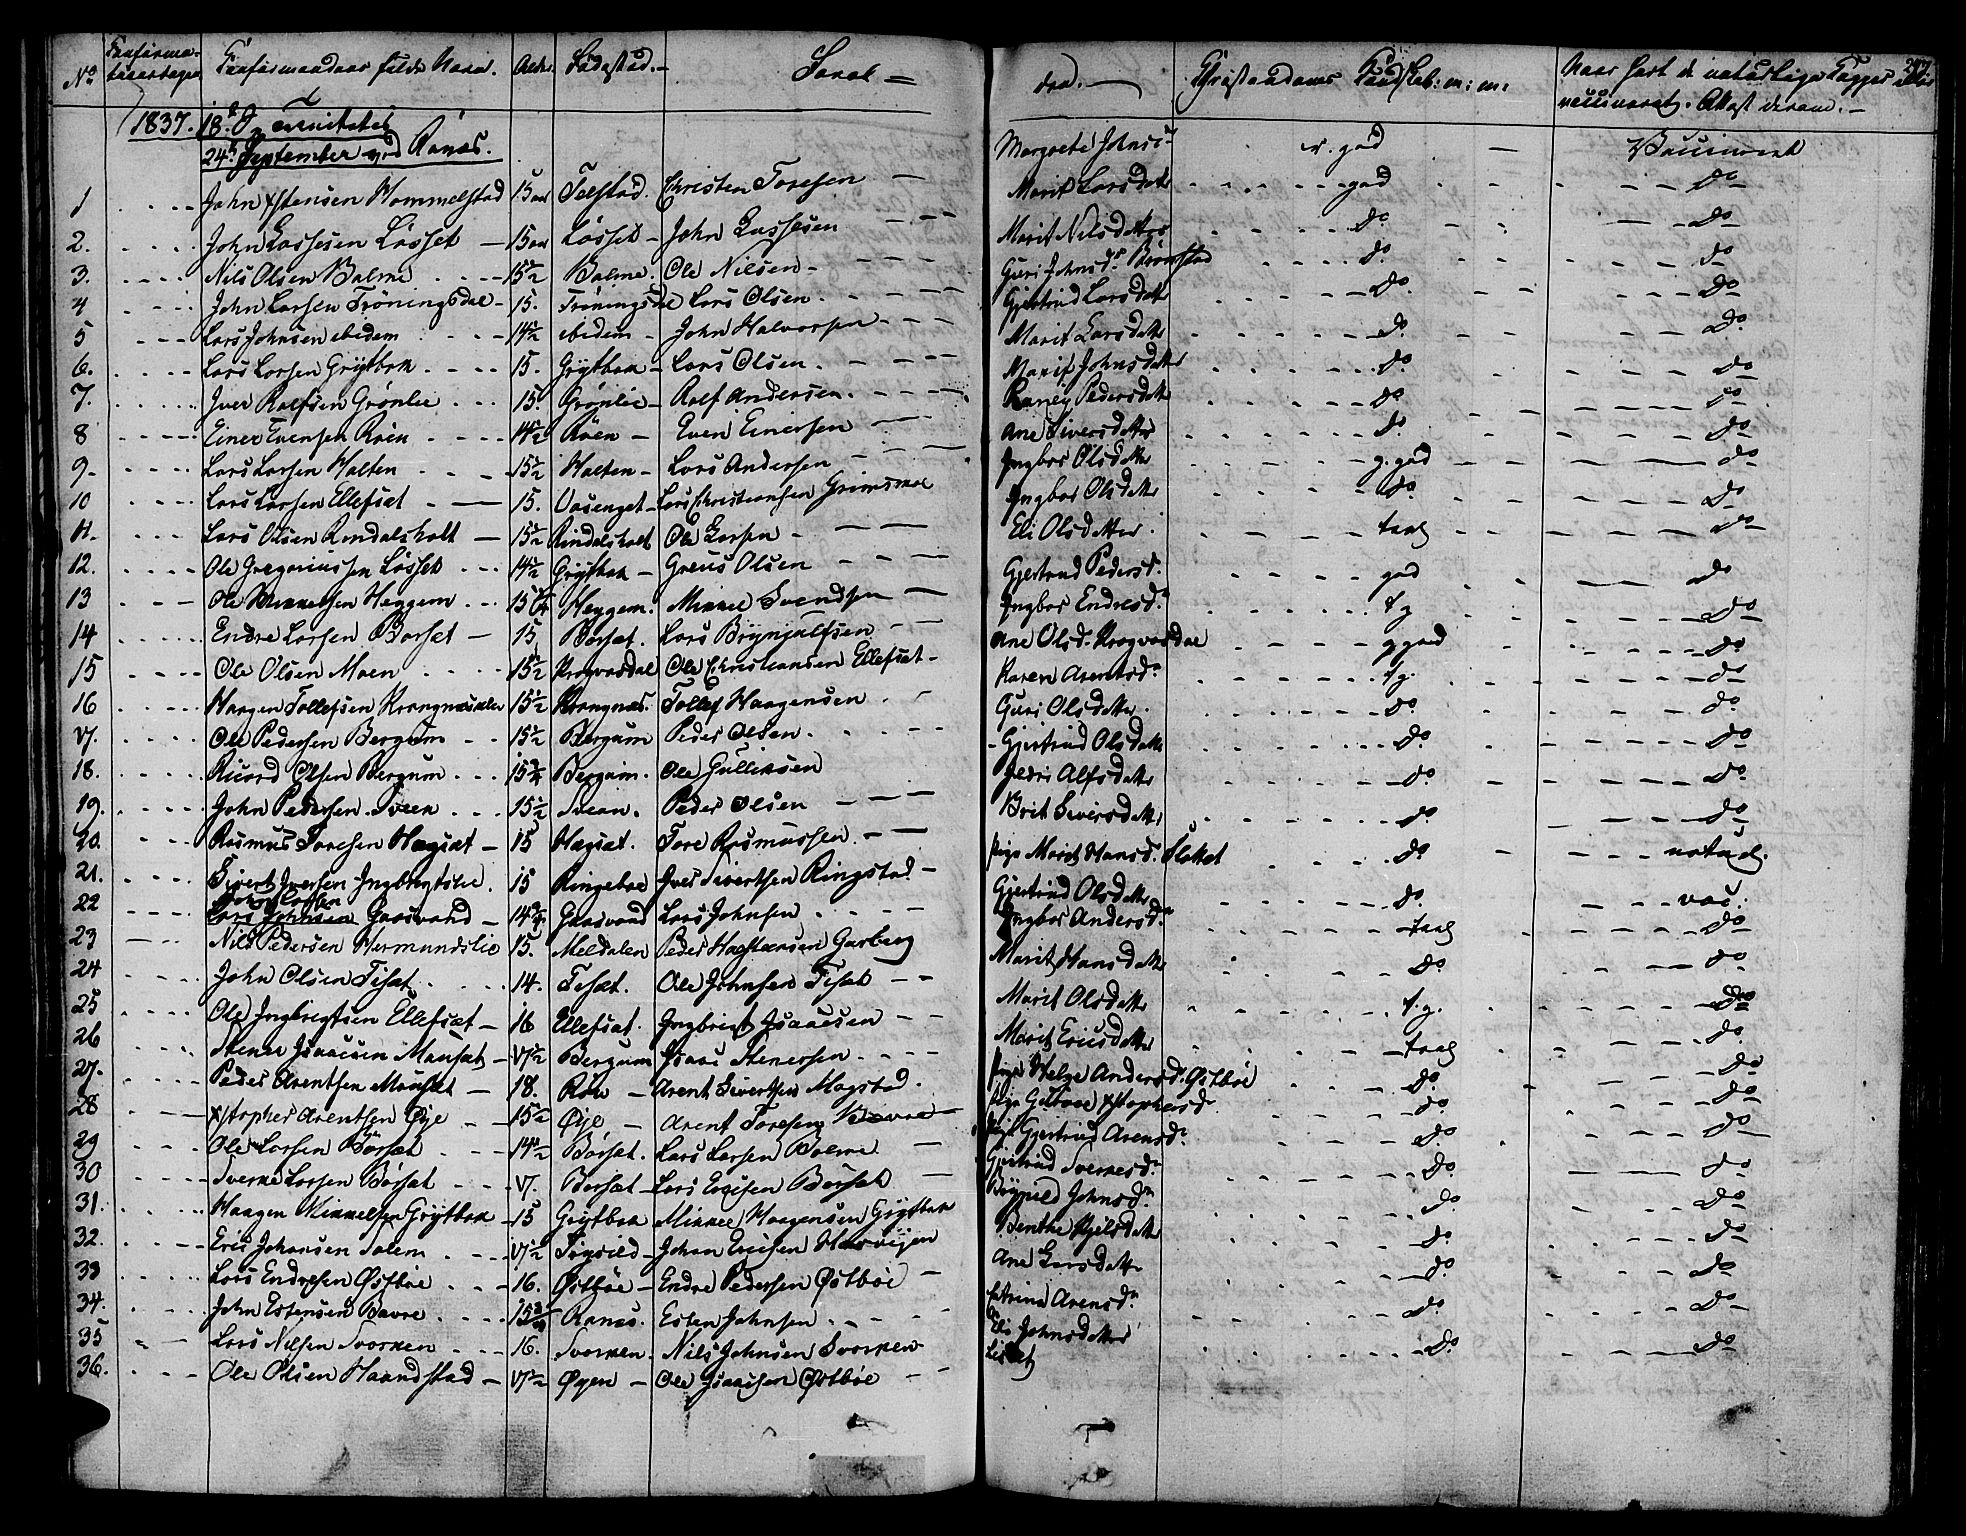 No Confirma- Confirmandens fulde Navn. Alder. Fødested. Foræl = dre. Christendoms Kundskab: m: m: Naar hart de naturlige Kopper eller
tions dagen vaccineret. Attest derom.
1837. 18de S. e. Trinitatis
24de September ved Ranæs.
1 John Xstensen Hommelstad 15 aar Telstad. Christen Toresen Margrete Johnsd. m. god Vaccineret
2. John Larssen Løsset 15 aar Løsset John Larssen Marit Larsdatter god do
3. Nils Olsen Bolme 15½ Bolme. Ole Nilsen Marit Nilsdatter do do
4 John Larsen Trøningsdal 15. Trøningsdal Lars Olsen Guri Johnsdr Brønstad do do
5 Lars Johnsen ibidem 14½ ibidem John Halvorsen Gjertrud Larsdatter do do
6. Lars Larsen Grytbak 15. Grytbak Lars Olsen Marit Larsdatter do do
7. Iver Rolfsen Grønlie 15. Grønlie Rolf Andersen Marit Johnsdatter do do
8 Einer Evensen Røen 14½ Røen Even Einersen Raney Pedersdatter do do
9. Lars Larsen Halten 15½ Halten Lars Andersen Ane Siversdatter do do
10 Lars Larsen Ellefsæt 15. Vasenget Lars Christiansen Grimsmoe Ingbor Olsdatter g. god do
11. Lars Olsen Rindalsholt 15½ Rindalsholt Ole Larsen Ingbor Olsdatter do do
12. Ole Gregoriussen Løsset 14½ Grytbak Greus Olsen Eli Olsdatter taal do
13 Ole Mikkelsen Heggem 15¼ Heggem. Mikkel Svendsen Gjertrud Pedersd. god do
14 Endre Larsen Børset 15 Børset. Lars Brynjulfsen Ingbor Endresd. t g do
15 Ole Olsen Moen 15½ Krogvasdal Ole Christiansen Ellefsæt Ane Olsd. Krogvasdal g god do
16 Haagen Tollefsen Krangnæsmelen 15½ Krangnæs. Tollef Haagensen Karen Arentsdr t g. do
17. Ole Pedersen Bergum 15½ Bergum Peder Olsen Guri Olsdatter do do
18. Sivard Olsen Bergum 15¾ Bergum. Ole Gulliksen Gjertrud Olsdatter do do
19. John Pedersen Sveen 15½ Svean. Peder Olsen Pedri Alfsdatter do do
20. Rasmus Toresen Hagsæt 15 Hagsæt. Tore Rasmussen Brit Siversdatter do do
21. Sivert Iversen Ingbrigtslie. 15 Ringeboe Iver Sivertsen Ringstad Pige Marit Hansd. Flaket do naturl.
22 John Larsen Gaasvand 14¾ Gaasvand Lars Johnsen Gjertrud Olsdatter do vac.
23 Nils Pedersen Hermundslie 15. Meldalen Peder Halstensen Garberg Ingbor Andersdr taal do
24 John Olsen Fiset 14. Fiset. Ole Johnsen Fiset Marit Hansdatter do do
25 Ole Ingbrigtsen Ellefsæt 16 Ellefsæt. Ingbrigt Isaacsen Marit Olsdatter t. g. do
26 Stener Isaacsen Mauset 17½ Bergum Isaac Stenersen Marit Ericsdatter taal do
27. Peder Arentsen Mauset 18. Røe Arent Sivertsen Mogstad. Pige Helge Andersd. Østbøe do do
28 Xstopher Arentsen Øye 15½ Øye Arent Toresen Bævre Pige Gølvoe Xstophersdr do do
29 Ole Larsen Børset 14½ Børset. Lars Larsen Bolme Pige Gjertrud Arensdr do do
30 Sverke Larsen Børset 17. Børset Lars Ericsen Børset Gjertrud Sverkesdr do do
31. Haagen Mikkelsen Grytbak 15 Grytbak Mikkel Haagensen Grytbak Brynild Johnsdr do do
32. Eric Johansen Solem 17½ Sogsild Johan Ericsen Hasvigen Benthe Kjelsdatter do do
33 Lars Endresen Østbøe 16. Østbøe Endre Pedersen Østbøe Ane Larsdatter do do
34. John Estensen Bævre 15¾ Ranæs. Esten Johnsen Catrina Arensdr do do
35 Lars Nilsen Svorken 16. Svorken. Nils Johnsen Svorken Eli Johnsdatter do do
36. Ole Olsen Haandstad 17½ Øyen Ole Isaacsen Østbøe Lisbet